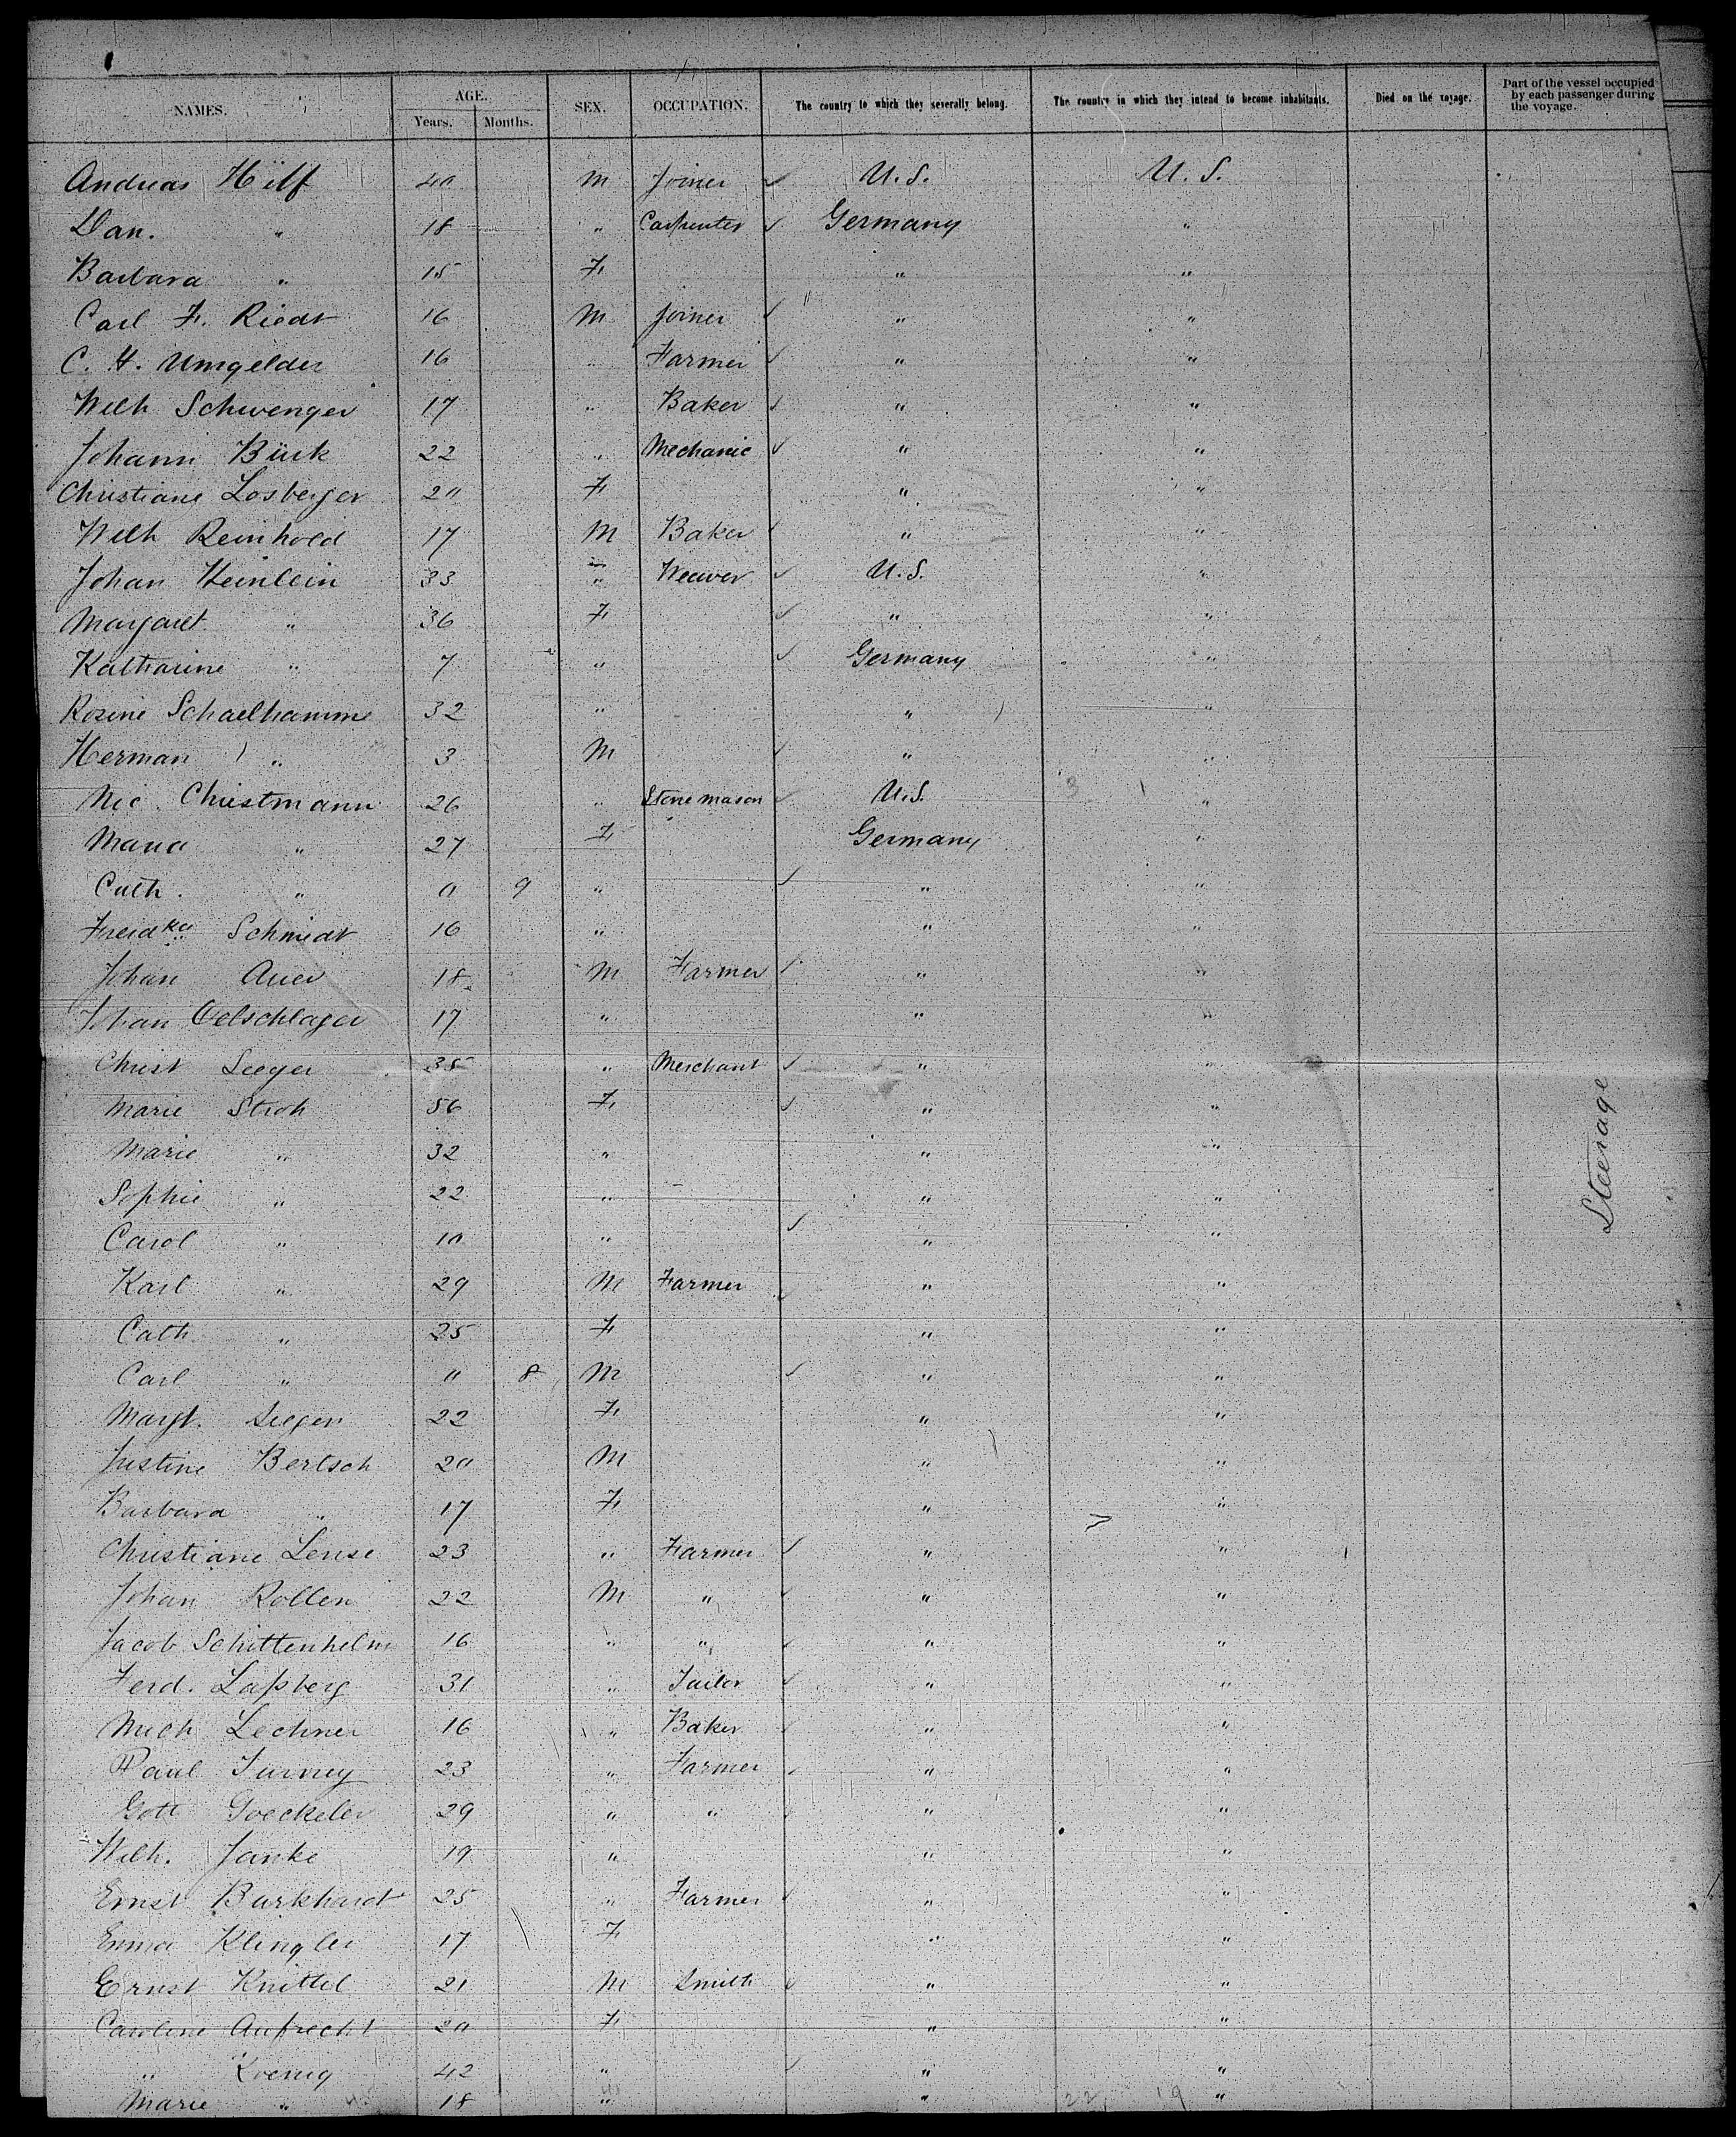 NAMES. AGE. Years. Months. SEX. OCCUPATION. The country to which they severally belong. The country in which they intend to become inhabitants. Died on the voyage. Part of the vessel occupied by each passenger during the voyage.
Andreas Hilf 40 M Joiner U.S. U.S.
Dan. " 18 " Carpenter Germany "
Barbara " 15 F " "
Carl F. Riedt 16 M Joiner " "
C. H. Umgelder 16 " Farmer " "
Wilh Schwenger 17 " Baker " "
Johann Bürk 22 " Mechanic " "
Christiane Losberger 20 F " "
Wilh Reinhold 17 M Baker " "
Johan Heinlein 33 " Weaver U.S. "
Margaret " 36 F " "
Katharine " 7 " Germany "
Rosine Schaelhamme 32 " " "
Herman " 3 M " "
Nic. Christmann 26 " Stone mason U.S. "
Maria " 27 F Germany "
Cath. " 0 9 " " "
Schmidt 16 " " "
Johan Auer 18 M Farmer " "
Johan Oelschlager 17 " " "
Christ Seeger 35 " Merchant " "
Marie Stroh 56 F " "
Marie " 32 " " "
Sophie " 22 " " "
Carol " 10 " " "
Karl " 29 M Farmer " "
Cath. " 25 F " "
Carl " " 8 M " "
Margt. 22 F " "
Justine Bertsch 20 M " "
Barbara " 17 F " "
Christiane Lense 23 " Farmer " "
Johan Rollen 22 M " " "
Jacob Schittenhelm 16 " " " "
Ferd. Laßberg 31 " Tailor " "
Mich Lechner 16 " Baker " "
Paul Turney 23 " Farmer " "
Gott Goeckeler 29 " " " "
Wilh. Janke 19 " " "
Ernst Burkhardt 25 " Farmer " "
Emma Klingler 17 F " "
Ernst Knittel 21 M Smith " "
Caroline Aufrecht 20 F " "
" Koenig 42 " " "
Marie " 18 " " "
Steerage